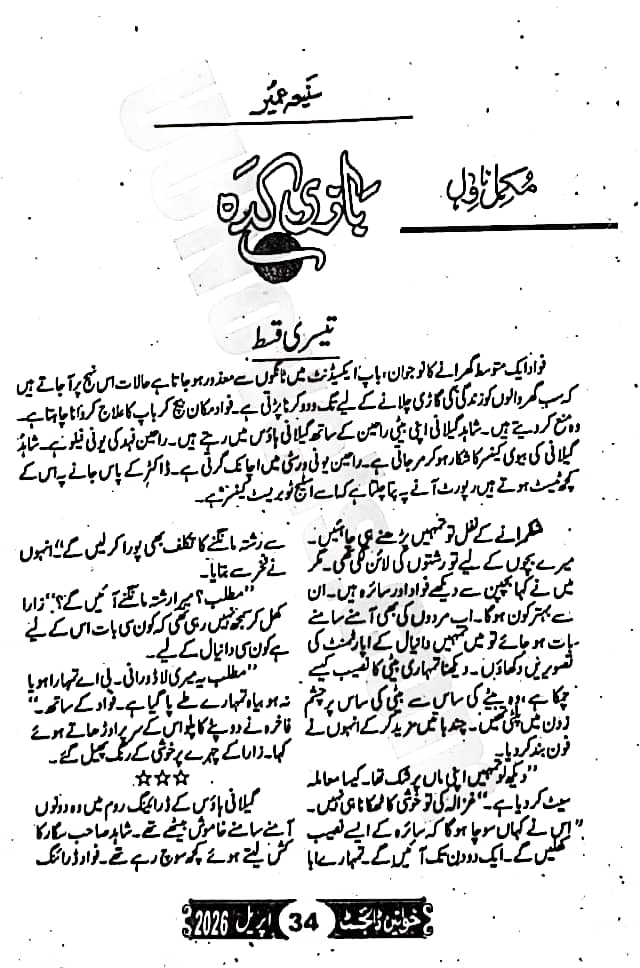 سنیعہ عمیر
مکمل ناول
بازی کدہ
تیسری قسط
فواد ایک متوسط گھرانے کا نوجوان، باپ ایکسیڈنٹ میں ٹانگوں سے معذور ہو جاتا ہے حالات اس نہج پر آ جاتے ہیں
کہ سب گھر والوں کو زندگی کی گاڑی چلانے کے لیے تگ و دو کرنا پڑتی ہے۔ فواد مکان بیچ کر باپ کا علاج کروانا چاہتا ہے۔
وہ منع کر دیتے ہیں۔ شاہد گیلانی اپنی بیٹی رامین کے ساتھ گیلانی ہاؤس میں رہتے ہیں۔ رامین فہد کی یونی فیلو ہے۔ شاہد
گیلانی کی بیوی کینسر کا شکار ہو کر مر جاتی ہے۔ رامین یونی ورسٹی میں اچانک گرتی ہے۔ ڈاکٹر کے پاس جانے پہ اس کے
کچھ ٹیسٹ ہوتے ہیں رپورٹ آنے پہ پتا چلتا ہے کہ اسے اسٹیج ٹو بریسٹ کینسر ہے۔
شکرانے کے نفل تو تمہیں پڑھنے ہی چاہئیں۔
میرے بچوں کے لیے تو رشتوں کی لائن لگی تھی۔ مگر
میں نے کہا بچپن سے دیکھے فواد اور سائرہ ہیں۔ ان
سے بہتر کون ہوگا۔ اب مردوں کی بھی آمنے سامنے
بات ہو جائے تو میں تمہیں دانیال کے اپارٹمنٹ کی
تصویریں دکھاؤں۔ دیکھنا تمہاری بیٹی کا نصیب کیسے
چمکا ہے، وہ بیٹے کی ساس سے بیٹی کی ساس پر چشم
زدن میں پلٹی تھیں۔ چند باتیں مزید کر کے انہوں نے
فون بند کر دیا۔
”دیکھ لو تمہیں اپنی ماں پر شک تھا۔ کیسا معاملہ
سیٹ کر دیا ہے۔“ غزالہ کی تو خوشی کا ٹھکانا ہی نہیں۔
”اس نے کہاں سوچا ہوگا کہ سائرہ کے ایسے نصیب
کھلیں گے۔ ایک دو دن تک آئیں گے۔ تمہارے ابا
سے رشتہ مانگنے کا تکلف بھی پورا کر لیں گے“ انہوں
نے فخر سے بتایا۔
”مطلب؟ میرا رشتہ مانگنے آئیں گے؟“ زارا
کھل کر سمجھ نہیں رہی تھی کہ کون سی بات اس کے لیے
ہے کون سی دانیال کے لیے۔
”مطلب یہ میری لاڈو رانی۔ بی اے تمہارا ہو یا
نہ ہو بیاہ تمہارے طے پا گیا ہے۔ فواد کے ساتھ۔“
فاخرہ نے دوپٹے کا پلو اس کے سر پر اوڑھاتے ہوئے
کہا۔ زارا کے چہرے پر خوشی کے رنگ پھیل گئے۔
☆☆☆
گیلانی ہاؤس کے ڈرائنگ روم میں وہ دونوں
آمنے سامنے خاموش بیٹھے تھے۔ شاہد صاحب سگار کا
کش لیتے ہوئے کچھ سوچ رہے تھے۔ فواد ڈرائنگ
خواتین ڈائجسٹ 34 اپریل 2026